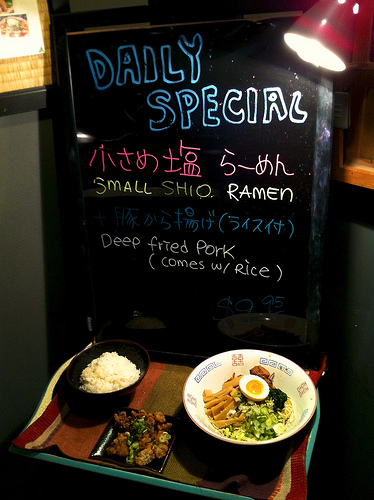 DAILY
SPECIAL
小さめ塩 らーめん
SMALL SHIO RAMEN
+ 豚から揚げ(ライス付)
Deep fried Pork
(comes w/ Rice)
$9.95